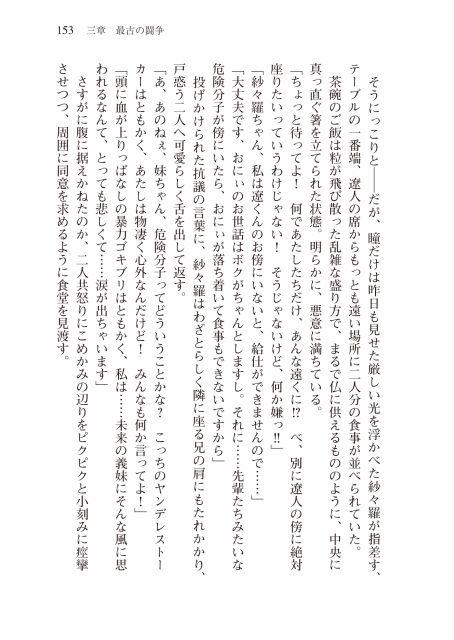 153　三章　最古の闘争
そうにっこりと――だが、瞳だけは昨日も見せた厳しい光を浮かべた紗々羅が指差す、
テーブルの一番端、遼人の席からもっとも遠い場所に二人分の食事が並べられていた。
茶碗のご飯は粒が飛び散った乱雑な盛り方で、まるで仏に供えるもののように、中央に
真っ直ぐ箸を立てられた状態。明らかに、悪意に満ちている。
「ちょっと待ってよ！　何であたしたちだけ、あんな遠くに⁉　べ、別に遼人の傍に絶対
座りたいっていうわけじゃない！　そうじゃないけど、何か嫌っ‼」
「紗々羅ちゃん、私は遼くんのお傍にいないと、給仕ができませんので……」
「大丈夫です、おにぃのお世話はボクがちゃんとしますし。それに……先輩たちみたいな
危険分子が傍にいたら、おにぃが落ち着いて食事もできないですから」
投げかけられた抗議の言葉に、紗々羅はわざとらしく隣に座る兄の肩にもたれかかり、
戸惑う二人へ可愛らしく舌を出して返す。
「あ、あのねぇ、妹ちゃん、危険分子ってどういうことかな？　こっちのヤンデレストー
カーはともかく、あたしは物凄く心外なんだけど！　みんなも何か言ってよ！」
「頭に血が上りっぱなしの暴力ゴキブリはともかく、私は……未来の義妹にそんな風に思
われるなんて、とっても悲しくて……涙が出ちゃいます」
さすがに腹に据えかねたのか、二人共怒りにこめかみの辺りをピクピクと小刻みに痙攣
させつつ、周囲に同意を求めるように食堂を見渡す。